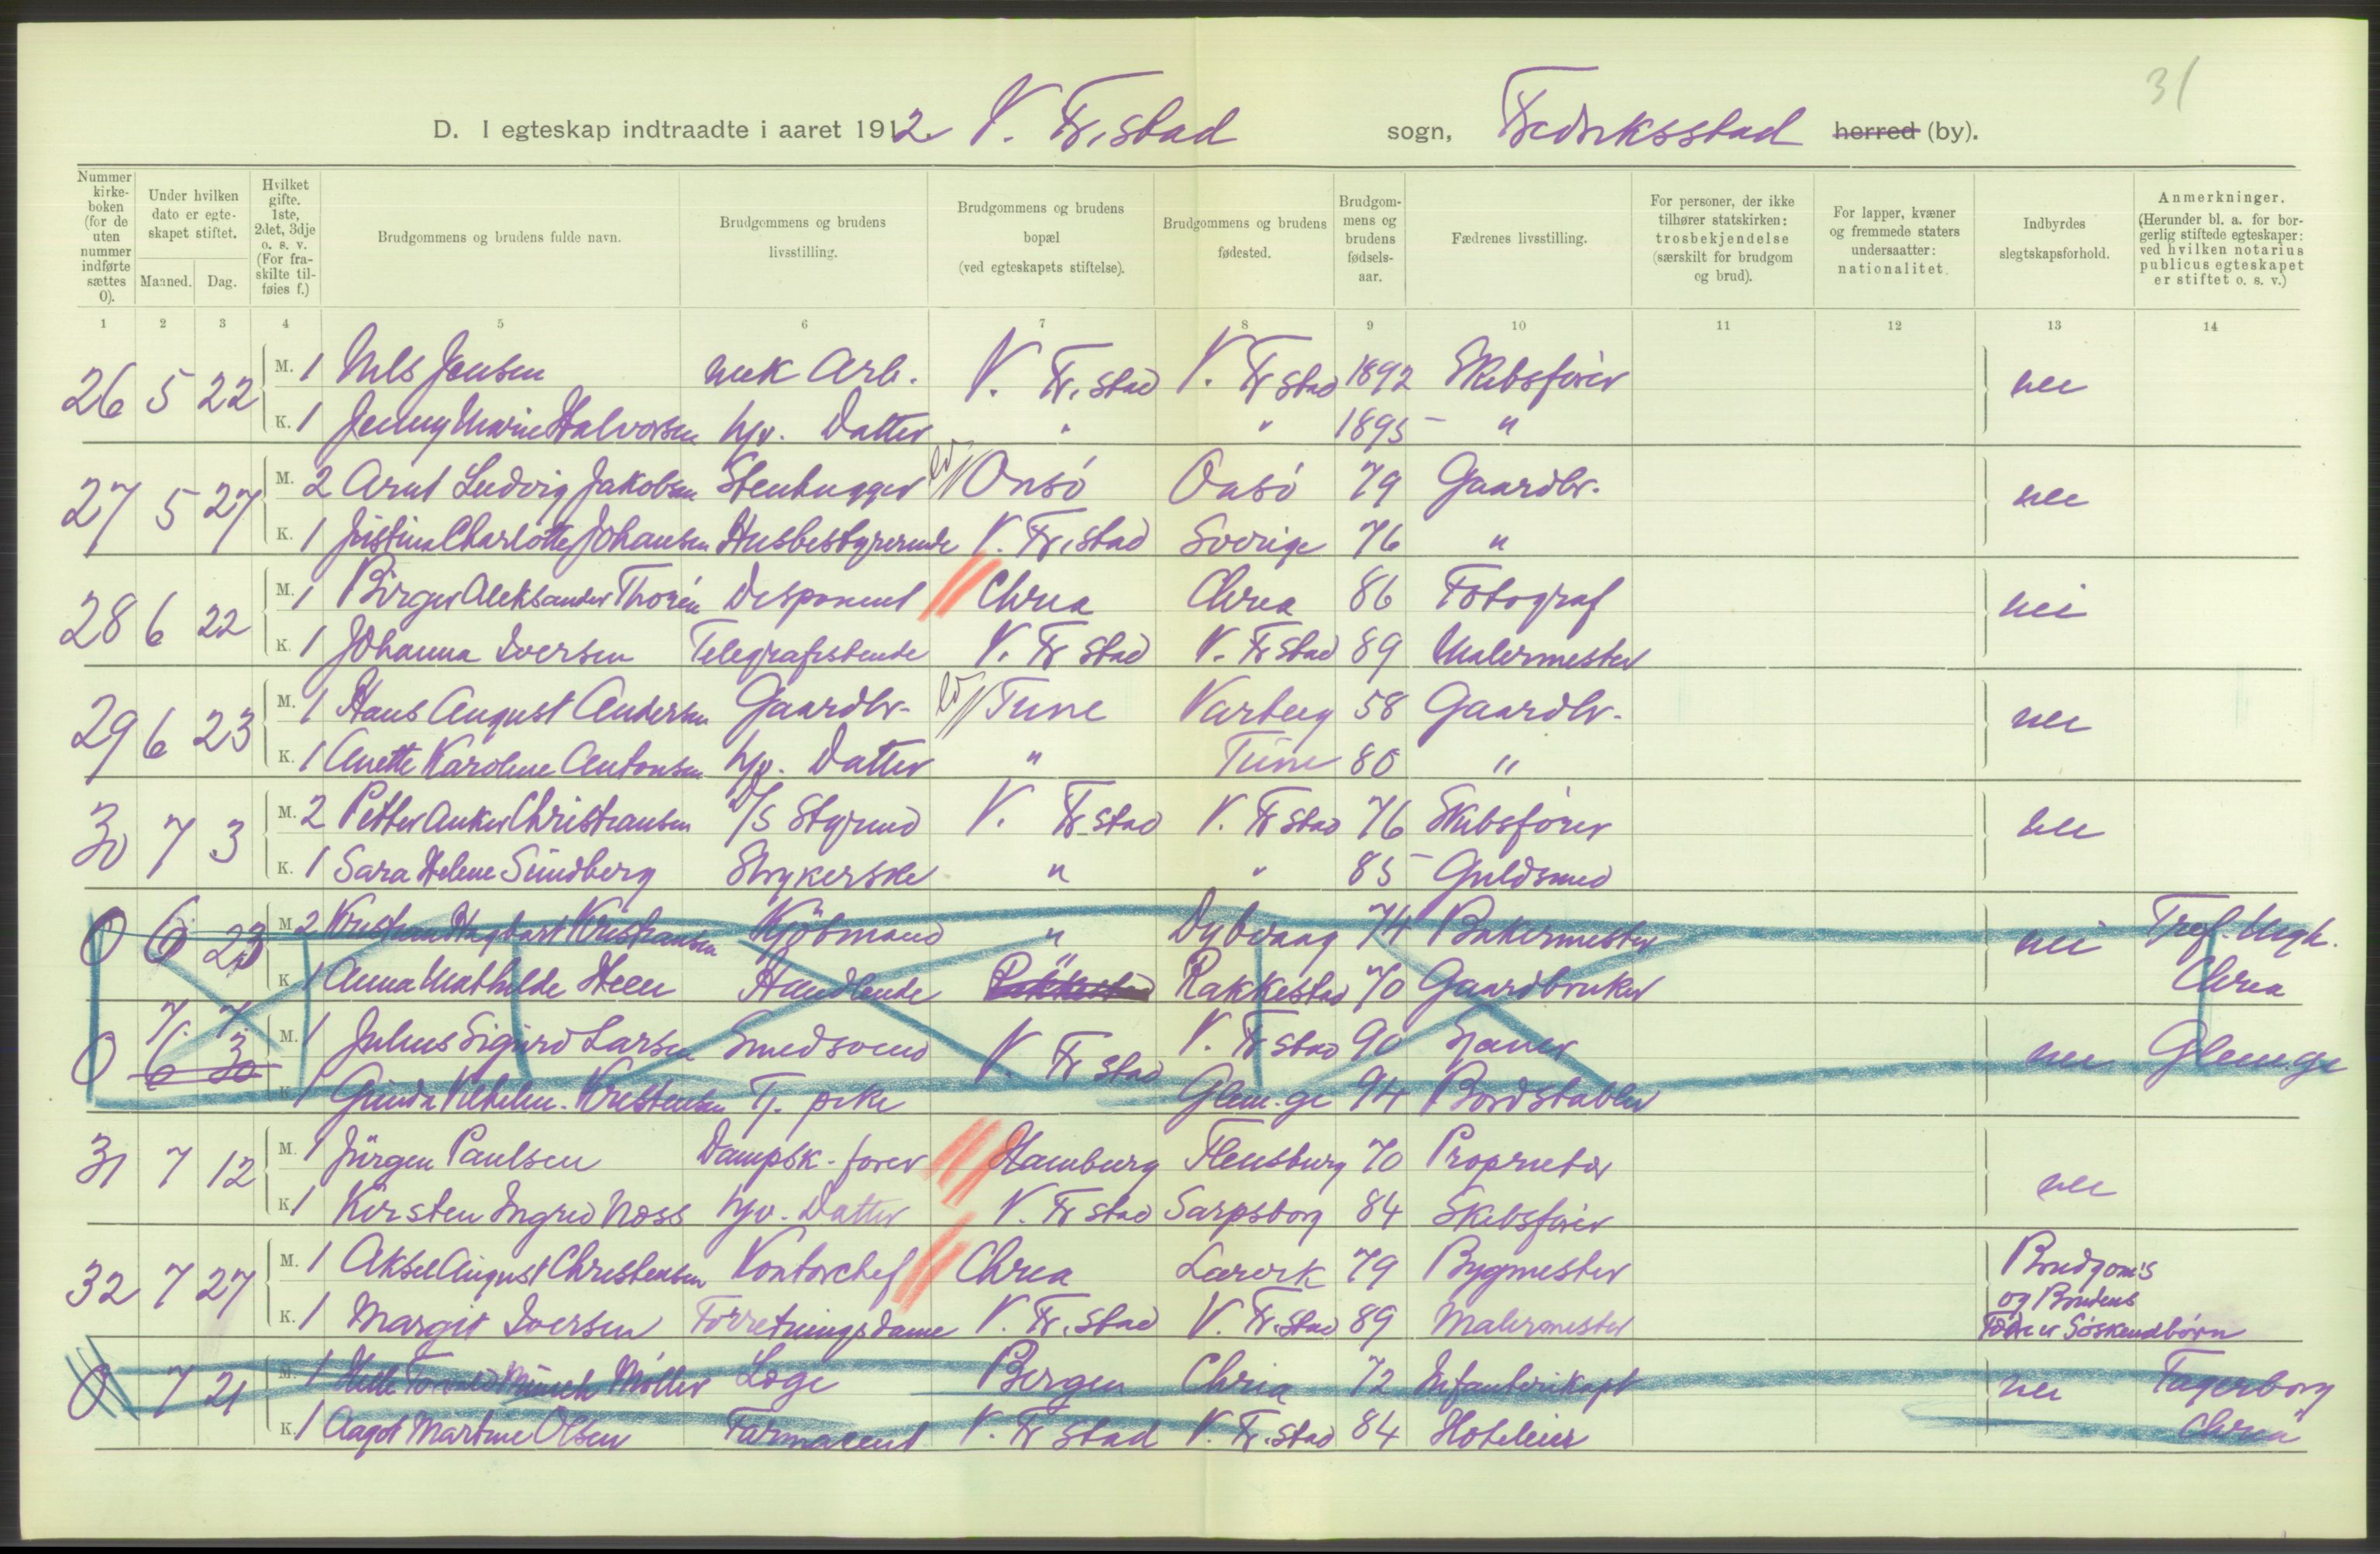 31
D. I egteskap indtraadte i aaret 1912. V. Fr.stad sogn, Fredriksstad herred (by).
Nummer kirke-boken (for de uten nummer indførte sættes 0).
Under hvilken dato er egte-skapet stiftet.
Maaned. Dag.
Hvilket gifte. 1ste, 2det, 3dje o. s. v. (For fra-skilte til-føies f.)
Brudgommens og brudens fulde navn.
Brudgommens og brudens livsstilling.
Brudgommens og brudens bopæl (ved egteskapets stiftelse).
Brudgommens og brudens fødested.
Brudgom-mens og brudens fødsels-aar.
Fædrenes livsstilling.
For personer, der ikke tilhører statskirken: trosbekjendelse (særskilt for brudgom og brud).
For lapper, kvæner og fremmede staters undersaatter: nationalitet.
Indbyrdes slegtskapsforhold.
Anmerkninger. (Herunder bl. a. for bor-gerlig stiftede egteskaper: ved hvilken notarius publicus egteskapet er stiftet o. s. v.)
1 2 3 4 5 6 7 8 9 10 11 12 13 14
26 5 22 M. 1 Nils Jensen mek Arb. V. Fr.stad V. Fr stad 1892 Skibsfører nei
K. 1 Jenny Marie Halvorsen hjv. Datter " " 1895 "
27 5 27 M. 2 Arnt Ludvig Jakobsen Stenhugger Onsö Onsö 79 Gaardbr. nei
K. 1 Justina Charlotte Johansen Husbestyrerinde V. Fr.stad Sverige 76 "
28 6 22 M. 1 Birger Aleksander Thorén Disponent Chria Chria 86 Fotograf nei
K. 1 Johanna Iversen Telegrafistinde V. Fr stad V. Fr stad 89 Malermester
29 6 23 M. 1 Hans August Andersen Gaardbr. Tune Varteig 58 Gaardbr. nei
K. 1 Anette Karoline Antonsen hjv. Datter " Tune 80 "
30 7 3 M. 2 Petter Anker Christiansen D/S Styrmd V. Fr stad V. Fr stad 76 Skibsfører nei
K. 1 Sara Helene Sundberg Strykerske " " 85 Guldsmed
0 6 23 M 2 Kristian Hagbart Kristiansen Kjöbmand " Dybvaag 74 Bakermester nei Tref. Mgh.
K 1 Anna Mathilde Heen Handlende " Rakkestad Rakkestad 70 Gaardbruker Chria
7. 7.
0 6 30 M. 1 Julius Sigurd Larsen Smedsvend V. Fr stad V. Fr stad 90 Sjauer nei Glem.ge
K 1 Gunda Vilhelm. Kristensen Tj. pike Glem.ge 94 Bordstabler
31 7 12 M. 1 Jürgen Paulsen Dampsk-fører Hamburg Flensburg 70 Proprietær nei
K 1 Kirsten Ingrid Næss hjv. Datter V. Fr stad Sarpsborg 84 Skibsfører
32 7 27 M. 1 Aksel August Christensen Kontorchef Chria Larvik 79 Bygmester Brudgom's
og Brudens
K. 1 Margit Iversen Forretningsdame V. Fr. stad V. Fr. stad 89 Malermester Fædre er Söskendbörn
0 7 21 M. 1 Münch Möller Læge Bergen Chria 72 Infanterikapt nei Fagerborg
K. 1 Aagot Martine Olsen Farmaceut V. Fr stad V. Fr. stad 84 Hoteleier Chria